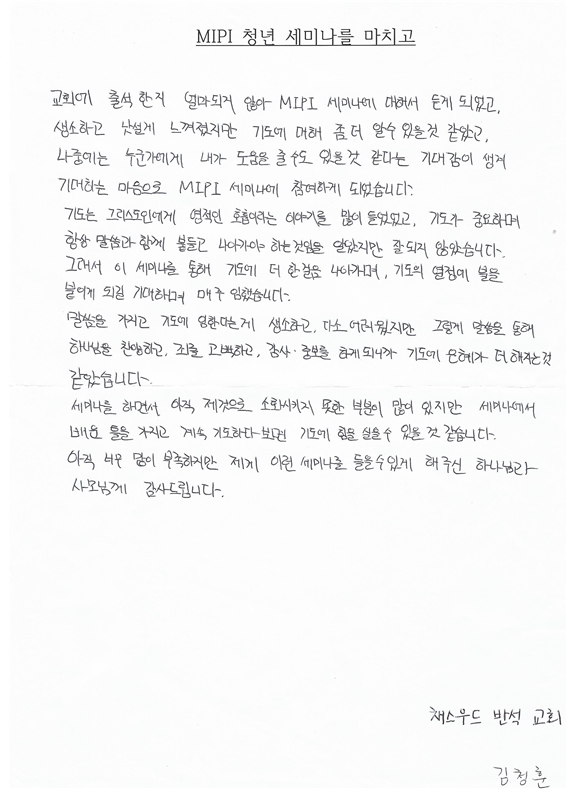 MIPI 청년 세미나를 마치고
교회에 출석한지 얼마되지 않아 MIPI 세미나에 대해서 듣게 되었고,
생소하고 낯설게 느껴졌지만 기도에 대해 좀 더 알수 있을것 같았고,
나중에는 누군가에게 내가 도움을 줄수도 있을것 같다는 기대감이 생겨
기대하는 마음으로 MIPI 세미나에 참여하게 되었습니다.
기도는 그리스도인에게 영적인 호흡이라는 이야기를 많이 들었었고, 기도가 중요하며
항상 말씀과 함께 붙들고 나아가야 하는것임을 알았지만 잘 되지 않았습니다.
그래서 이 세미나를 통해 기도에 더 한걸음 나아가며, 기도의 열정에 불을
붙이게 되길 기대하며 매주 임했습니다.
말씀을 가지고 기도에 임한다는게 생소하고, 다소 어려웠지만 그렇게 말씀을 통해
하나님을 찬양하고, 죄를 고백하고, 감사·중보를 하게되니까 기도에 은혜가 더 해지는것
같았습니다.
세미나를 하면서 아직 제것으로 소화시키지 못한 부분이 많이 있지만 세미나에서
배운 틀을 가지고 계속 기도하다보면 기도에 힘을 실을수 있을것 같습니다.
아직 너무 많이 부족하지만 제게 이런 세미나를 들을수있게 해주신 하나님과
사모님께 감사드립니다.
채스우드 반석 교회
김청훈